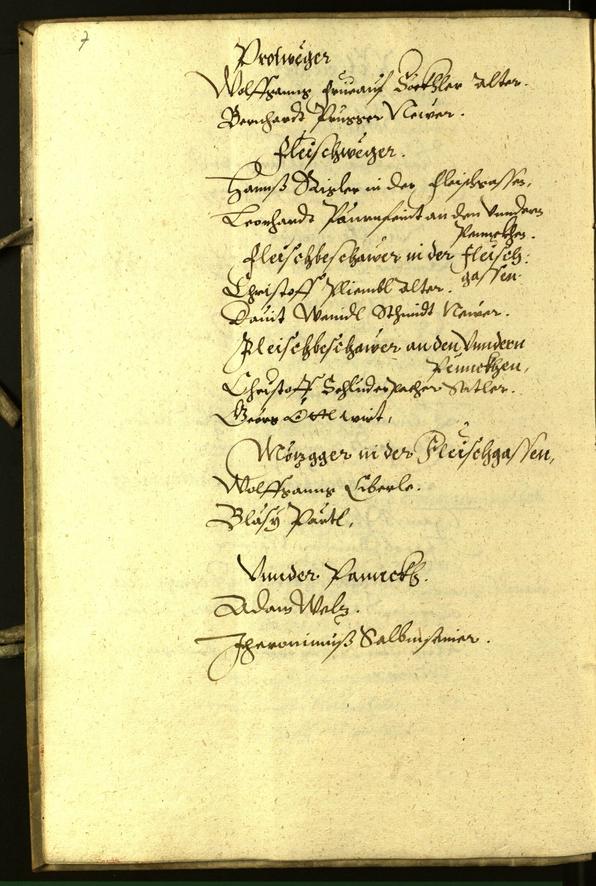 7
Protweger
Wolffganng Frueauf Alter.
Bernhardt Prugger Newer.
Fleischweger.
Hannß Rigler in der Fleischgassen,
Leonhardt Paurnfeint an den Vndern
Pennckhen.
Fleischbeschawer in der Fleisch:
gassen.
Christoff Pliembl Alter.
Dauit Wenidl Schmidt Newer.
Fleischbeschawer an den Vndern
Pennckhen,
Christoff Schluderpacher Satler.
Georg Öttl wirt,
Mözgger in der Fleischgassen,
Wolffganng Eiberle.
Bläsy Pärtl,
Vnnder Pannckh.
Adam Welz.
Jheronimuß